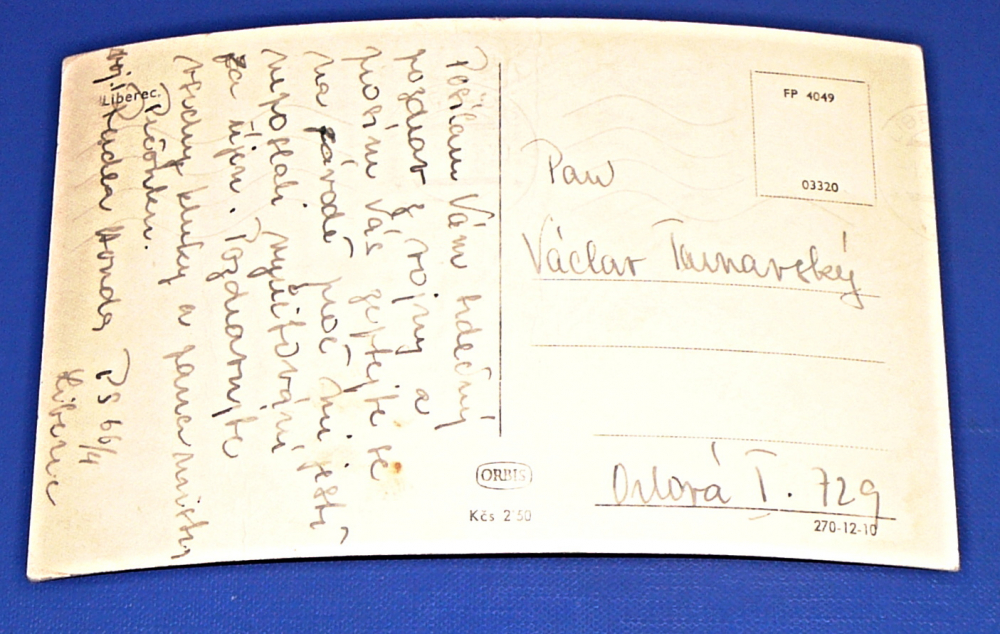 Posílám Vám srdečný
pozdrav z vojny a
prosím Vás zeptejte se
na závodě proč mi ještě
neposlali vyúčtování
za říjen. Pozdravujte
všechny kluky a pana mistra
Liberec.
PS 66/4
Liberec
FP 4049
03320
Pan
Václav Tarnavský
ORBIS
Kčs 2·50
Orlová I. 729
270-12-10